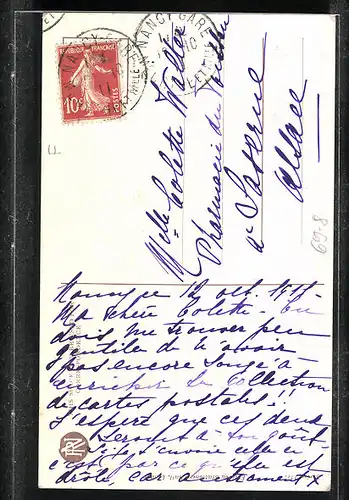 NANCY GARE
REPUBLIQUE FRANÇAISE
10c
POSTES
Melle Colette Walter
Pharmacie du
à Saverne
Alsace
69-8
Nancy ce 12 oct.
Ma chère Colette - Tu
dois me trouver peu
gentille de n'avoir
pas encore songé à
enrichir ta collection
de cartes postales!!
J'espère que ces deux
seront à ton goût
si je t'envoie celle-ci
c'est parce qu'elle est
drôle, car autrement